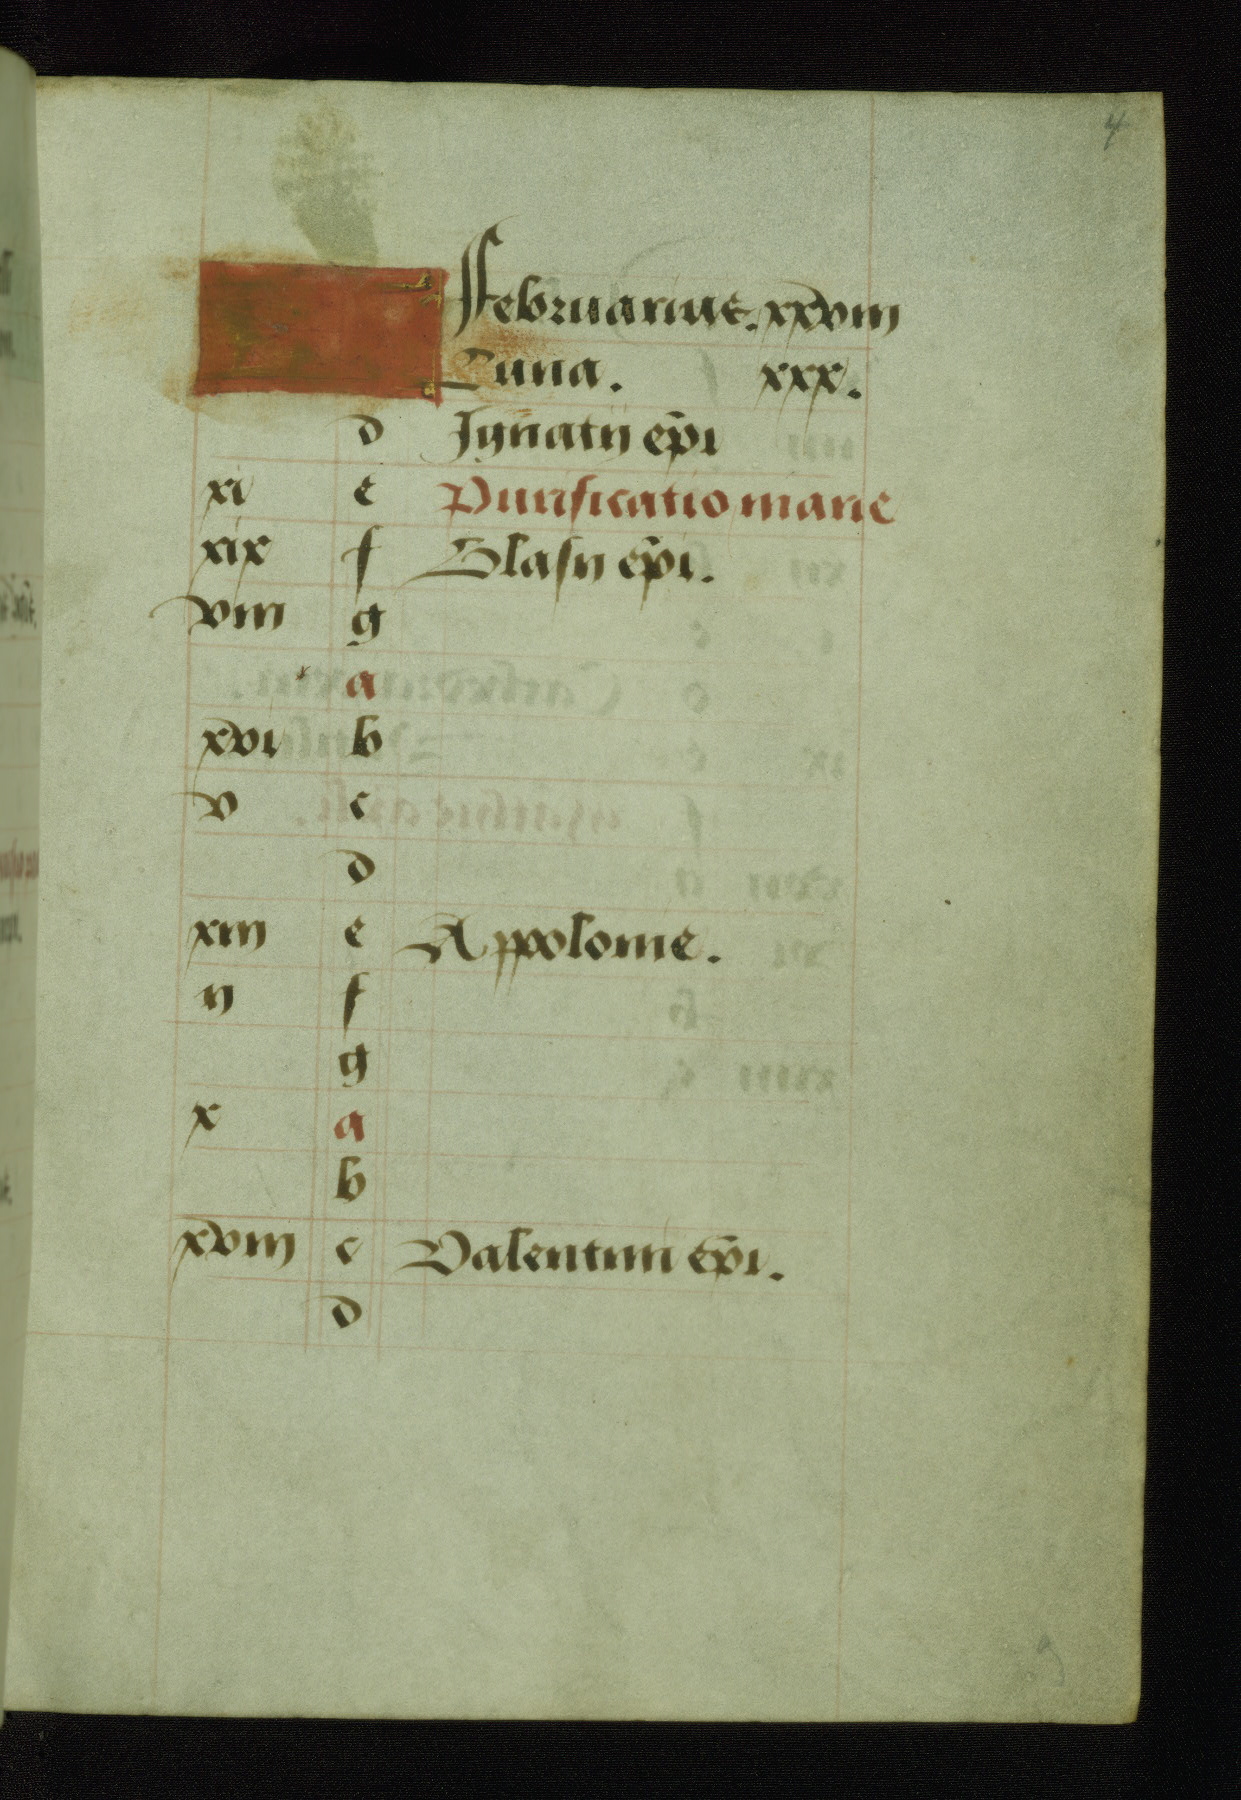 4
Februarius. xxviii
Luna. xxx.
d Ignatij ep̄i
xi e Purificatio marie
xix f Blasij ep̄i.
viii g
a
xvi b
v c
d
xiii e Appolonie.
ij f
g
x a
b
xviii c Valentini ep̄i.
d